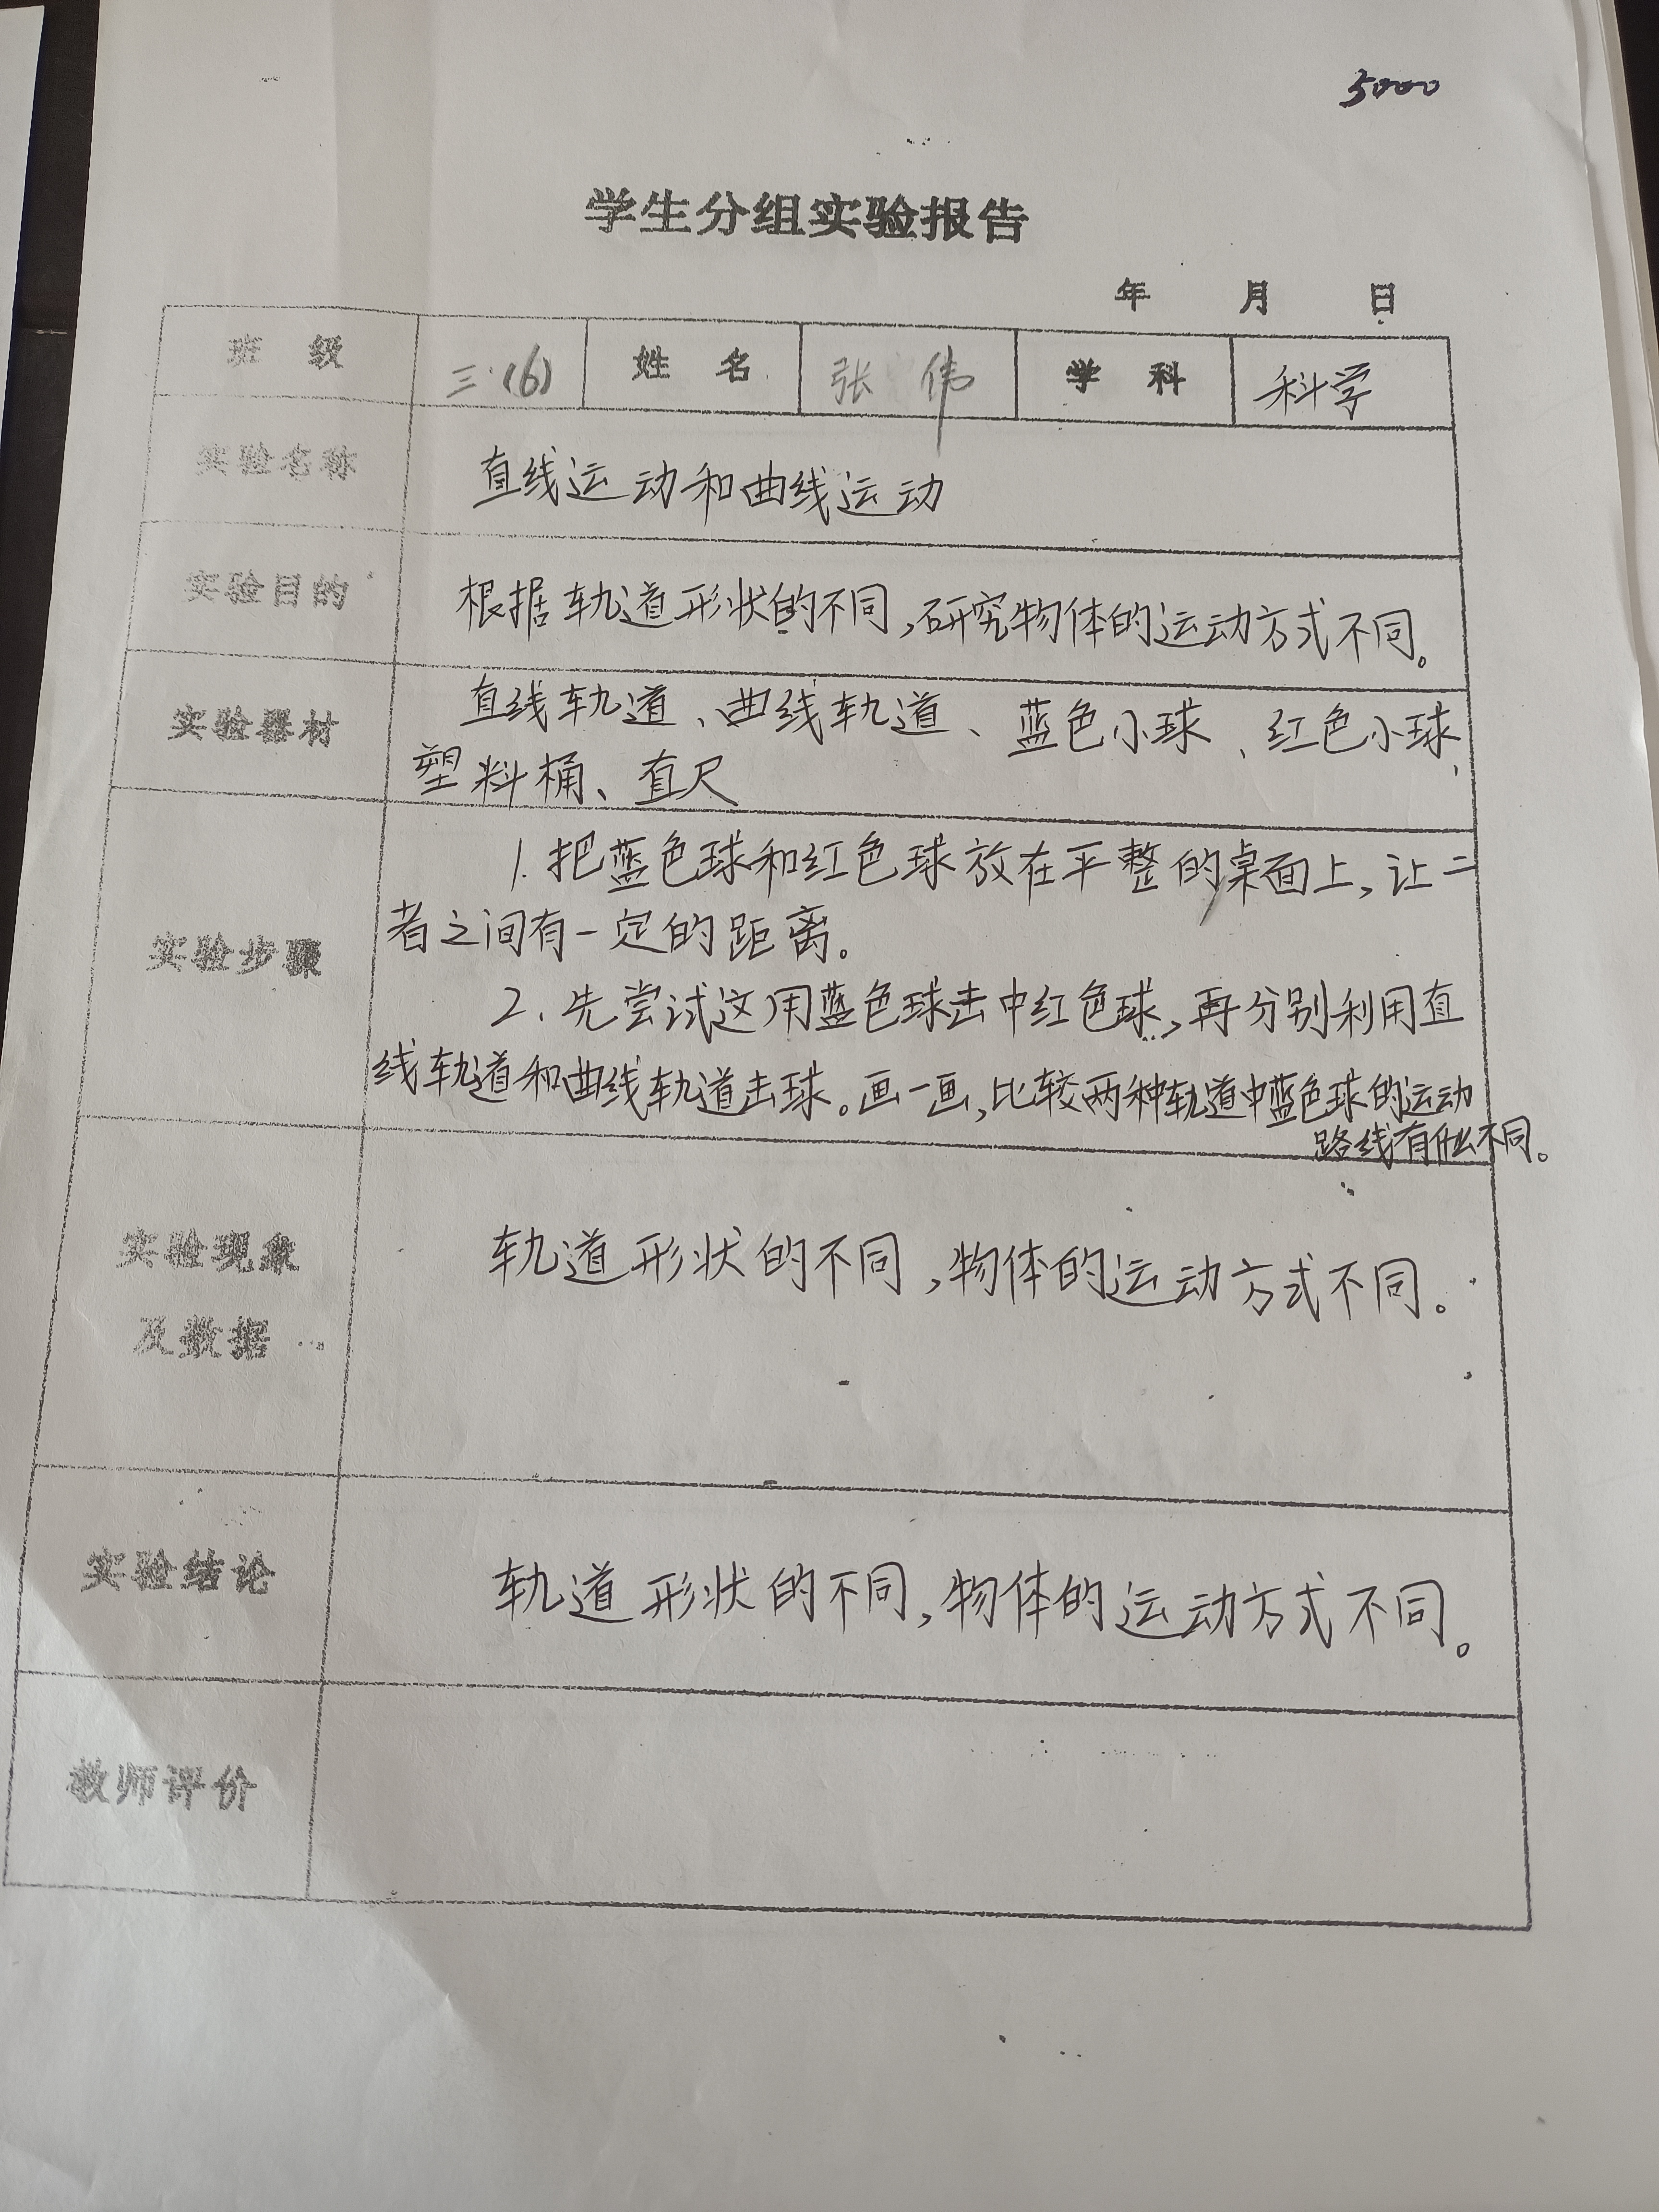 5000
学生分组实验报告
年 月 日
班 级 三(6) 姓 名 张 伟 学 科 科学
实验名称 直线运动和曲线运动
实验目的 根据轨道形状的不同,研究物体的运动方式不同。
实验器材 直线轨道、曲线轨道、蓝色小球、红色小球、
塑料桶、直尺
实验步骤 1.把蓝色球和红色球放在平整的桌面上,让二
者之间有一定的距离。
2.先尝试这用蓝色球击中红色球,再分别利用直
线轨道和曲线轨道击球。画一画,比较两种轨道中蓝色球的运动
路线有什么不同。
实验现象 轨道形状的不同,物体的运动方式不同。
及数据
实验结论 轨道形状的不同,物体的运动方式不同。
教师评价